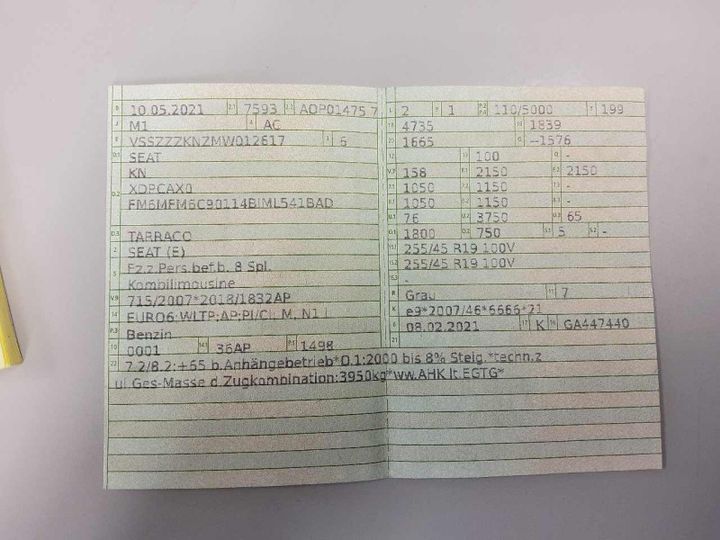 B 10.05.2021 2.1 7593 2.2 AOP01475 7
J M1 4 AC
E VSSZZZKNZMW012617 3 6
D.1 SEAT
KN
D.2 XDPCAX0
FM6MFM6C90114BIML541BAD
D.3 TARRACO
2 SEAT (E)
5 Fz.z.Pers.bef.b. 8 Spl.
Kombilimousine
V.9 715/2007*2018/1832AP
14 EURO6;WLTP;AP;PI/CI, M, N1 I
P.3 Benzin
10 0001 14.1 36AP P.1 1498
22 7.2/8.2:+65 b.Anhängebetrieb*O.1:2000 bis 8% Steig.*techn.z
ul Ges-Masse d.Zugkombination:3950kg*ww.AHK lt.EGTG*
L 2 9 1 P.2 P.4 110/5000 T 199
18 4735 19 1839
20 1665 G --1576
12 - 13 100 Q -
V.7 158 F.1 2150 F.2 2150
7.1 1050 7.2 1150 7.3 -
8.1 1050 8.2 1150 8.3 -
U.1 76 U.2 3750 U.3 65
O.1 1800 O.2 750 S.1 5 S.2 -
15.1 255/45 R19 100V
15.2 255/45 R19 100V
15.3 -
R Grau 11 7
K e9*2007/46*6666*21
6 08.02.2021 17 K 16 GA447440
21